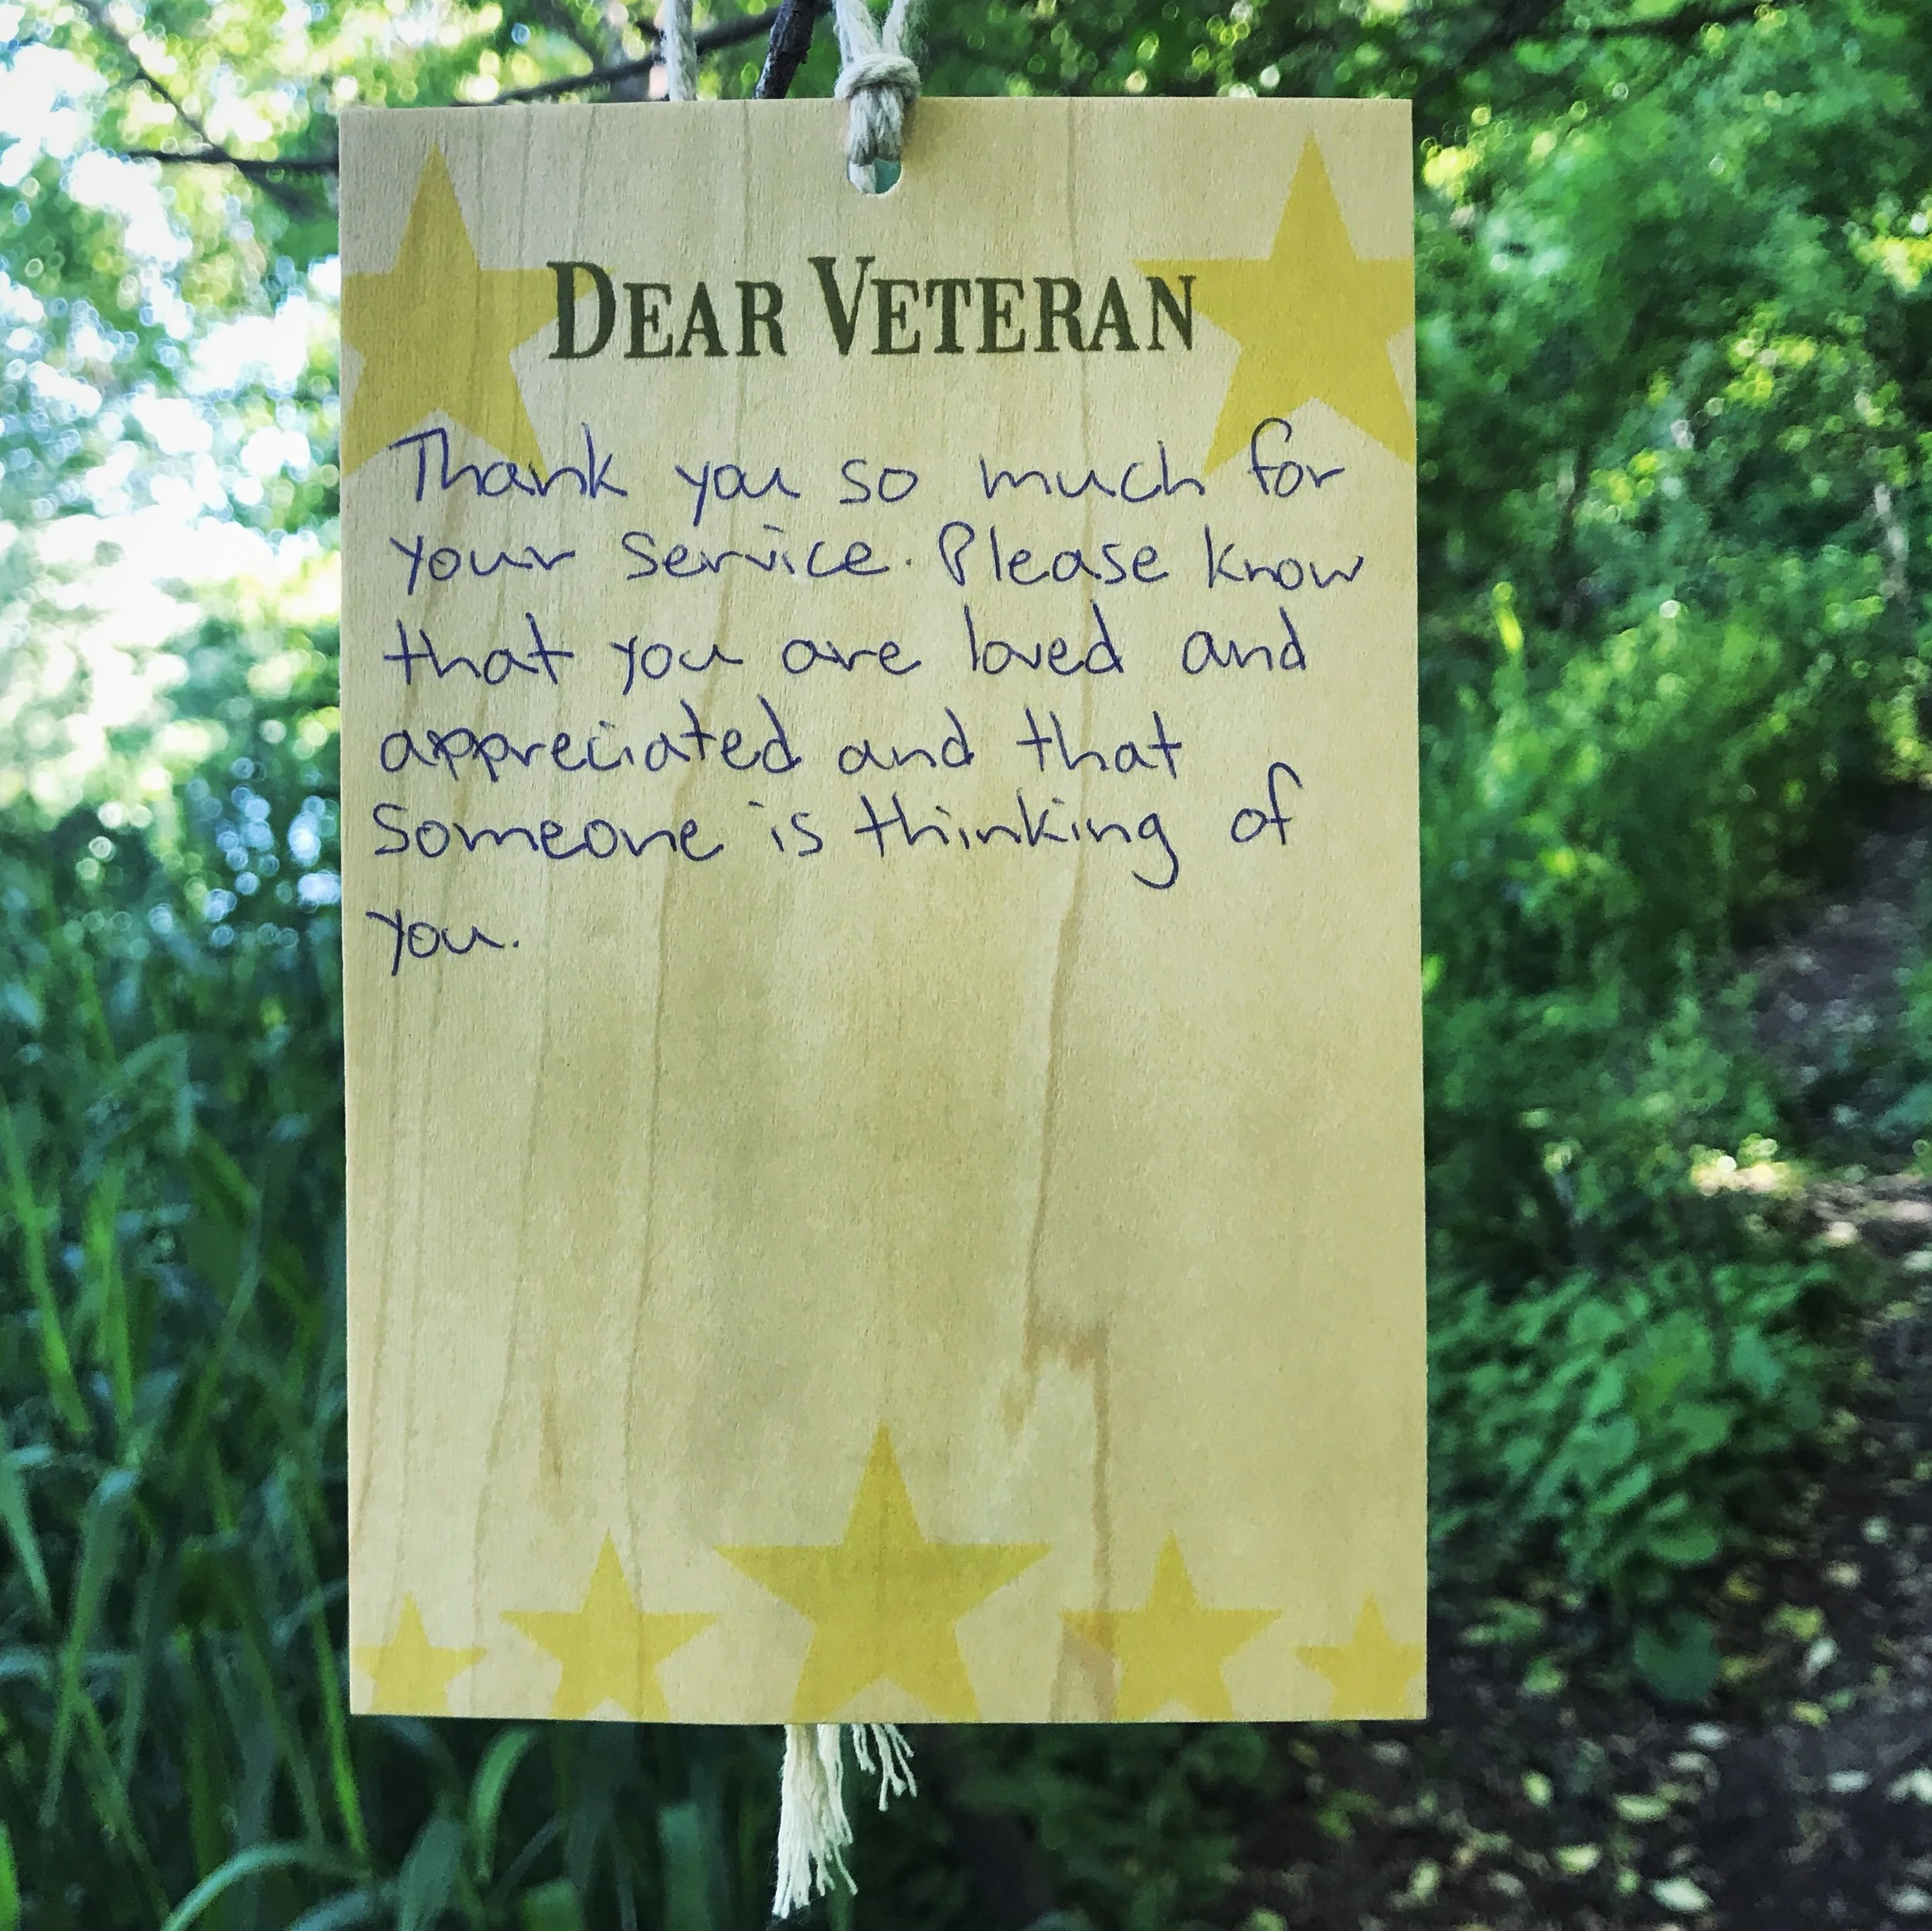 DEAR VETERAN
Thank you so much for
your service. Please know
that you are loved and
appreciated and that
someone is thinking of
you.